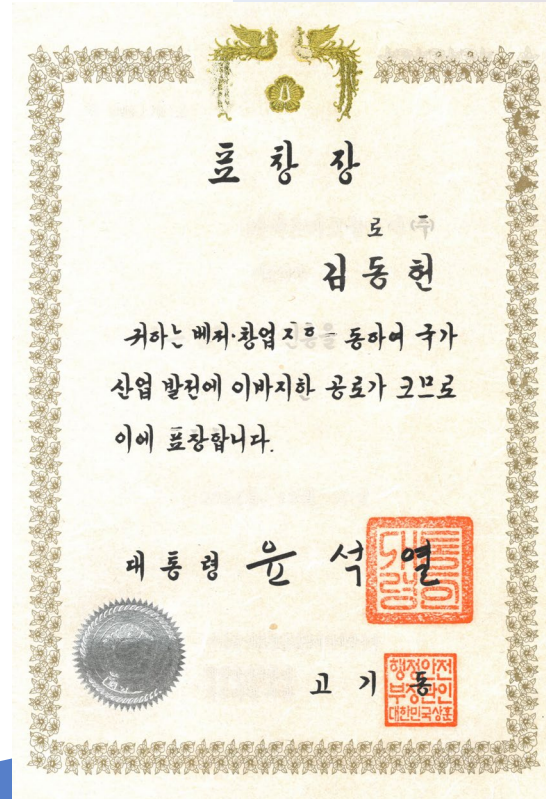 표 창 장
로 (주)
김 동 헌
귀하는 베처·창업 동하여 국가
산업 발전에 이바지한 공로가 크므로
이에 표창합니다.
대 통 령 윤 석 열
고 기 동
행정안전
부장관인
대한민국상훈